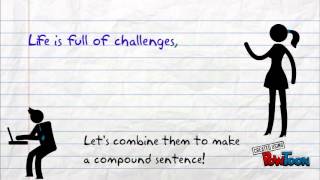 Life is full of challenges,
Let's combine them to make
a compound sentence!
CREATED USING
PowToon